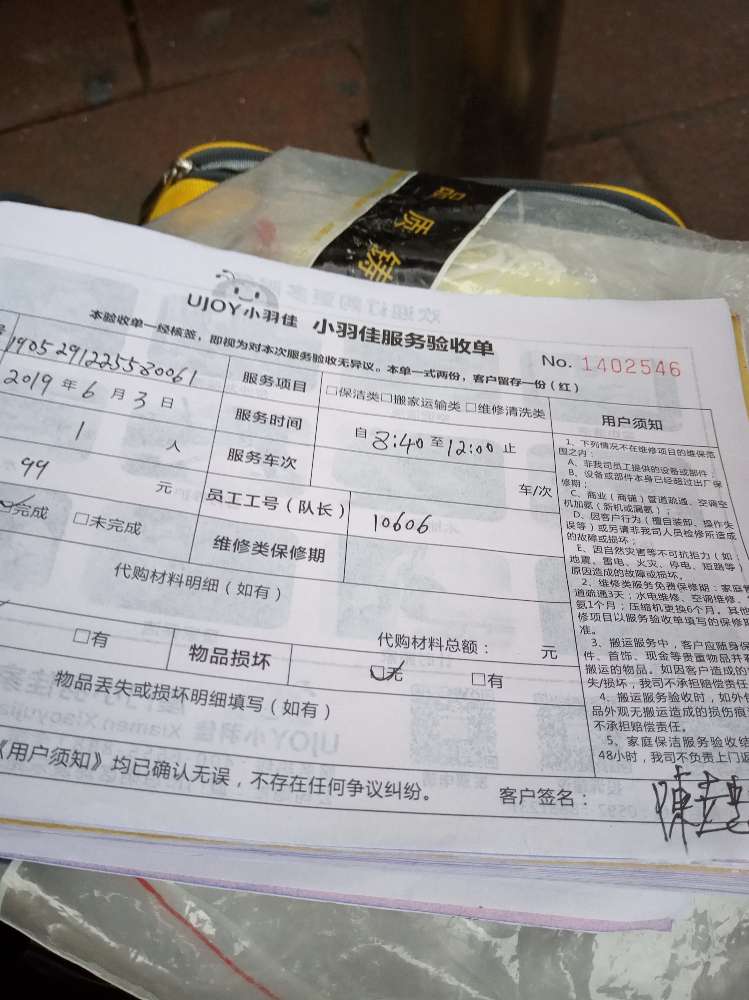 品质
UJOY小羽佳 小羽佳服务验收单
本验收单一经核签，即视为对本次服务验收无异议。本单一式两份，客户留存一份（红）
No. 1402546
1905291225580061
服务项目 □保洁类□搬家运输类□维修清洗类
2019年6月3日
服务时间 自8:40至12:00止
1人
服务车次 车/次
99元
员工工号（队长） 10606
完成 □未完成
维修类保修期
代购材料明细（如有）
代购材料总额： 元
□有 物品损坏 ☑无 □有
物品丢失或损坏明细填写（如有）
《用户须知》均已确认无误，不存在任何争议纠纷。
客户签名：
用户须知
1、下列情况不在维修项目的维保范
围之内：
A、非我司员工提供的设备或部件；
B、设备或部件本身已经超过出厂保
修期；
C、商业（商铺）管道疏通、空调空
机加氨（新机或漏氨）；
D、因客户行为（擅自装卸、操作失
误等）或另请非我司人员检修所造成
的故障或损坏；
E、因自然灾害等不可抗拒力（如：
地震、雷电、火灾、停电、短路等）
原因造成的故障或损坏。
2、维修类服务免费保修期：家庭管
道疏通3天；水电维修、空调维修、
氨1个月；压缩机更换6个月。其他
修项目以服务验收单填写的保修期
准。
3、搬运服务中，客户应随身保
件、首饰、现金等贵重物品并
搬运的物品。如因客户造成的
失/损坏，我司不承担赔偿责任
4、搬运服务验收时，如外
品外观无搬运造成的损伤痕
不承担赔偿责任。
5、家庭保洁服务验收结
48小时，我司不负责上门返